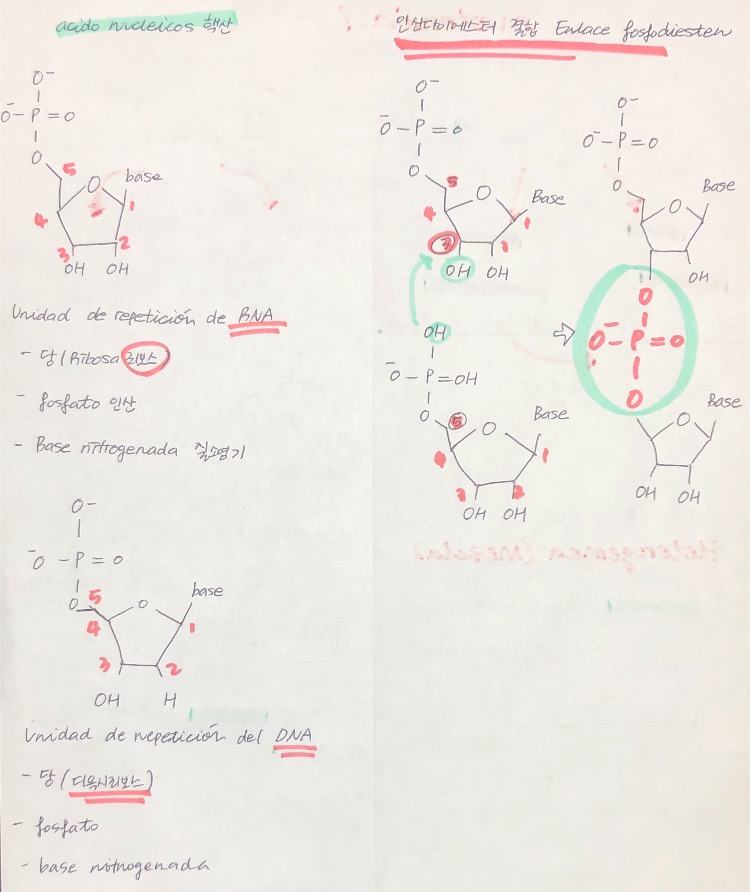 acido nucleicos 핵산
O⁻
⁻O-P=O
O
5
O
base
4
1
3
2
OH OH
Unidad de repetición de RNA
- 당(Ribosa 리보스)
- fosfato 인산
- Base nitrogenada 질소염기
O⁻
⁻O-P=O
O
5
O
base
4
1
3
2
OH H
Unidad de repetición del DNA
- 당(디옥시리보스)
- fosfato
- base nitrogenada
인산다이에스터 결합 Enlace fosfodiester
O⁻
⁻O-P=O
O
5
O
Base
4
1
3
OH OH
OH
⁻O-P=OH
O
5
O
Base
4
1
3
2
OH OH
O⁻
O⁻-P=O
O
O
Base
OH
O
O⁻-P=O
O
O
Base
OH OH